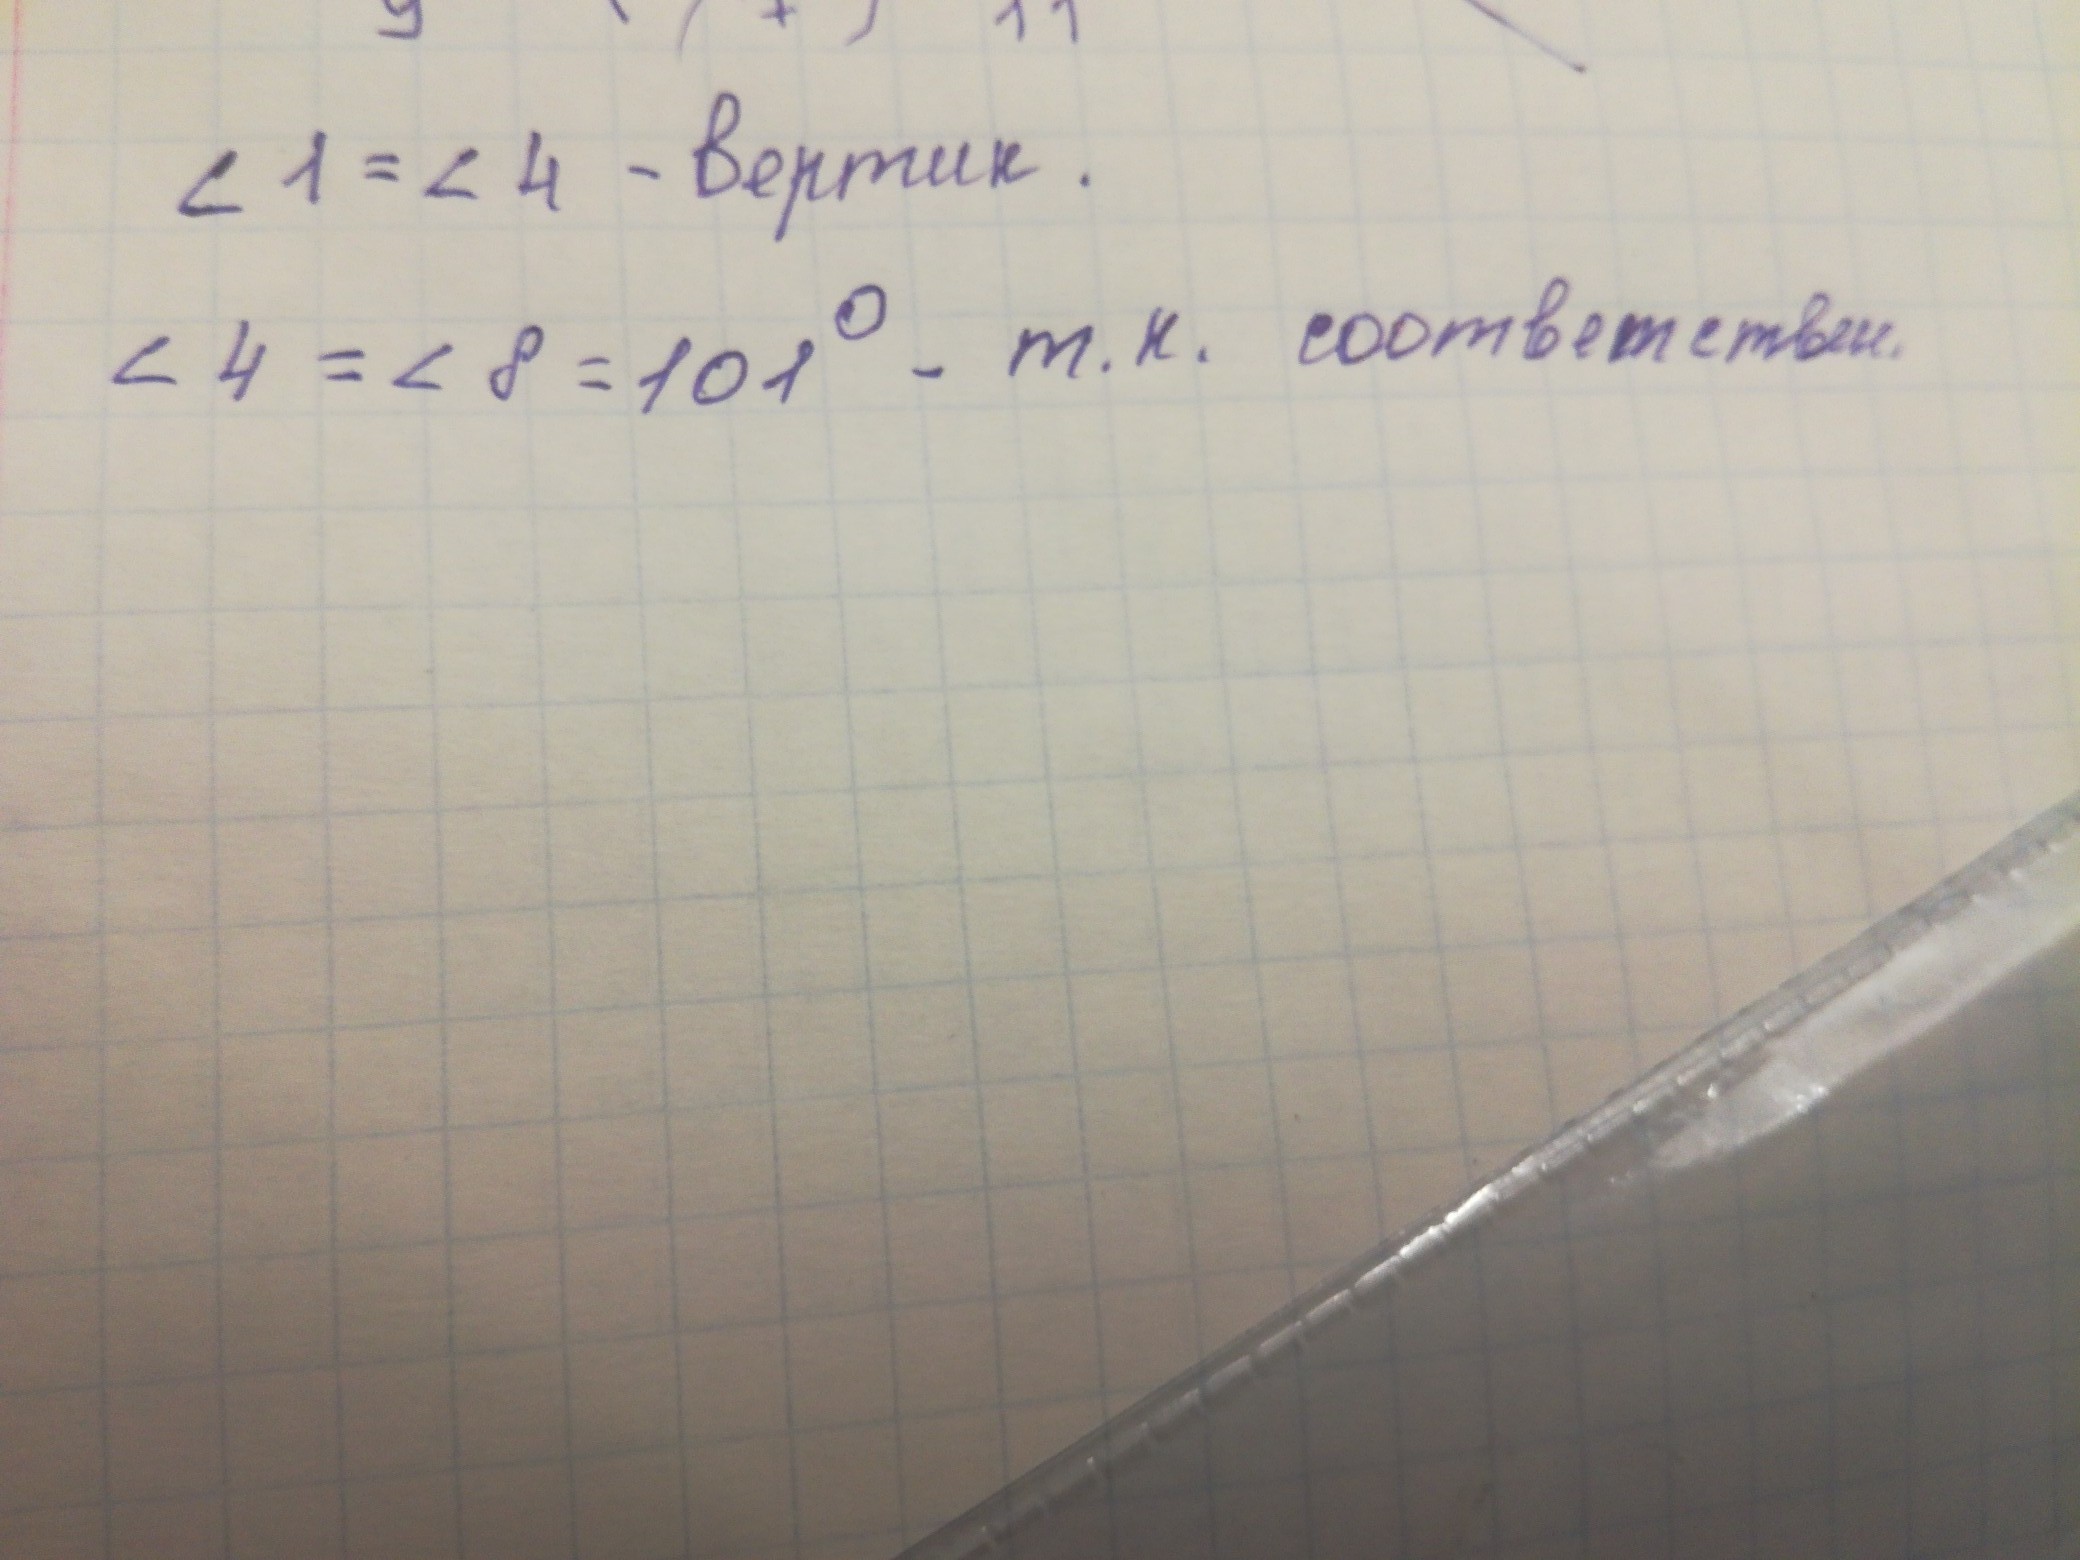 < 1 = < 4 - Вертик.
< 4 = < 8 = 101⁰ - т.к. соответствен.